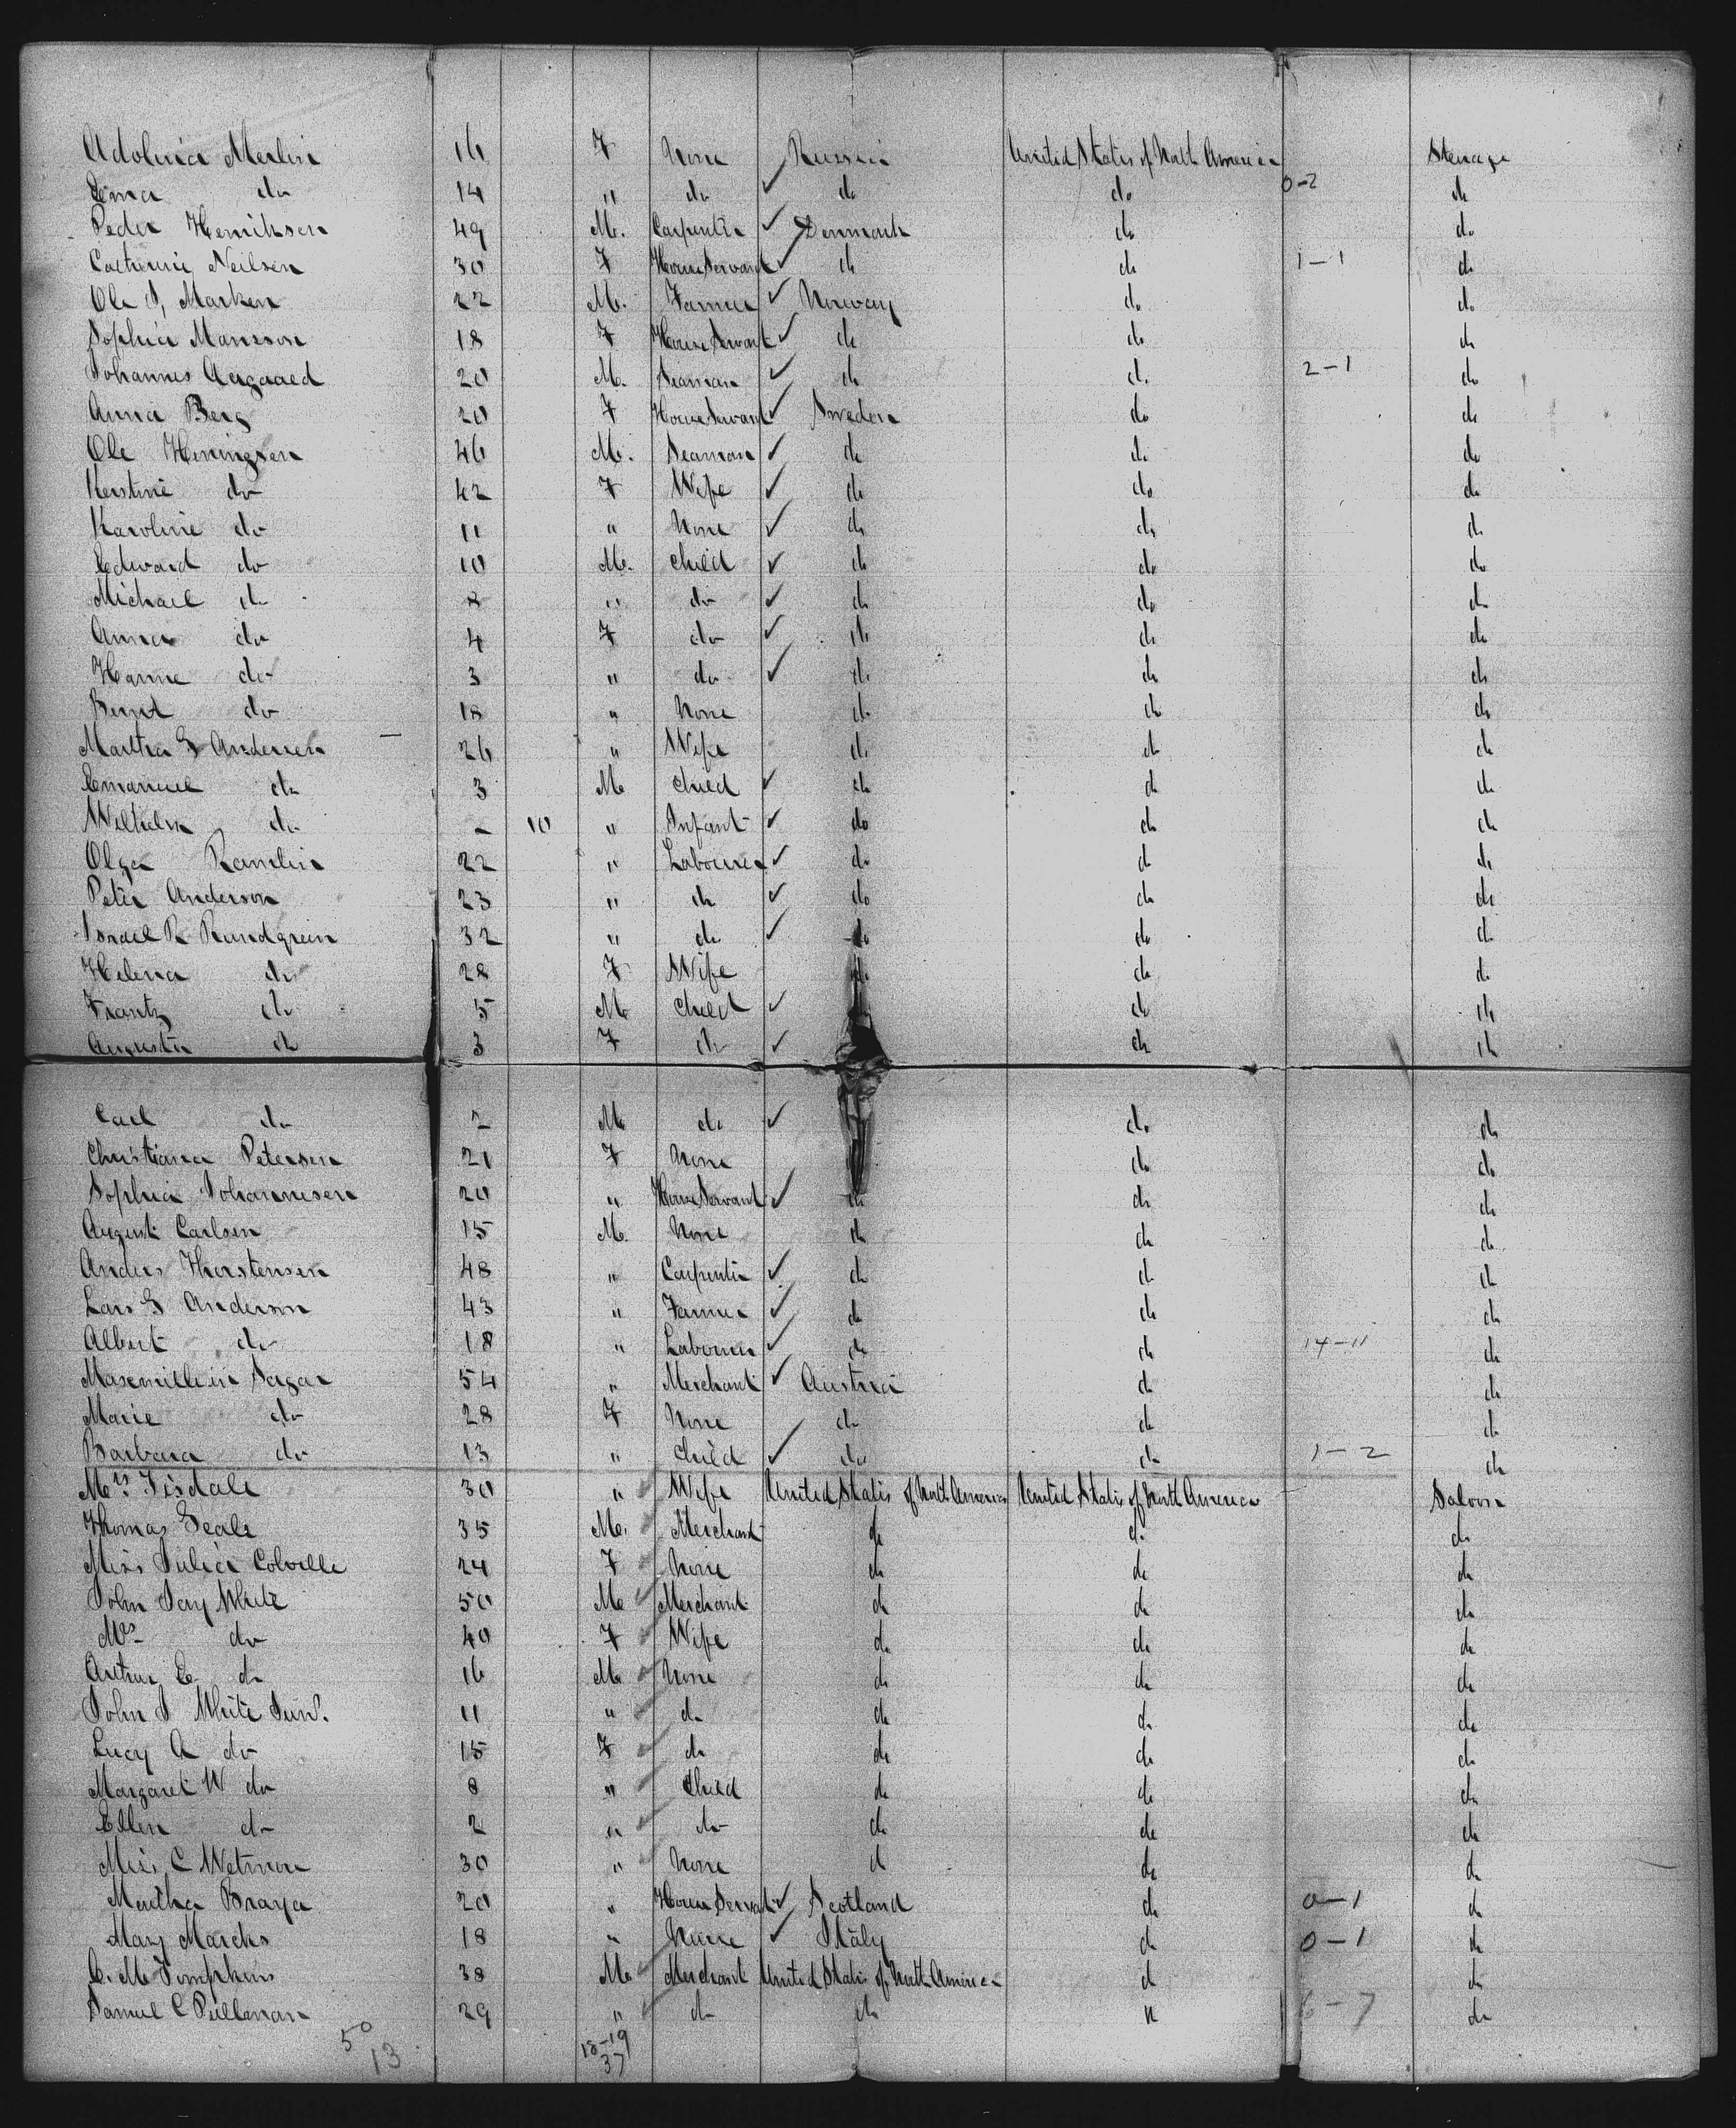 Adolmia Merlin 16 F None Russia United States of North America Steerage
Erna do 14 " do ✓ do do 0-2 do
Peder Henriksen 49 M. Carpenter ✓ Denmark do do
Catherine Neilsen 30 F House Servant ✓ do do 1-1 do
Ole Marken 22 M. Farmer ✓ Norway do do
Sophia Mansson 18 F House Servant ✓ do do do
Johannes Aagaard 20 M. Seaman ✓ do do 2-1 do
Anna Berg 20 F House Servant ✓ Sweden do do
Ole Henningsen 46 M. Seaman ✓ do do do
Kerstine do 42 F Wife ✓ do do do
Karoline do 11 " None ✓ do do do
Edward do 10 M. Child ✓ do do do
Michael do 8 " do ✓ do do do
Anna do 4 F do ✓ do do do
Hanne do 3 " do ✓ do do do
Bernt do 18 " None do do do
Martha G Andersen 26 " Wife do do do
Emanuel do 3 M Child ✓ do do do
Wilhelm do - 10 " Infant ✓ do do do
Olga Ramlin 22 " Labourer ✓ do do do
Peter Anderson 23 " do ✓ do do do
Israel R Rundgreen 32 " do ✓ do do do
Helena do 28 F Wife do do do
Frantz do 5 M Child ✓ do do
Augusta do 3 F do ✓ do do
Carl do 2 M do ✓ do do
Christiana Petersen 21 F None do do
Sophia Johannesen 20 " House Servant ✓ do do do
August Carlsen 15 M. None do do do
Anders Thorstensen 48 " Carpenter ✓ do do do
Lars G Anderson 43 " Farmer ✓ do do do
Albert do 18 " Labourer ✓ do do 14-11 do
Maxemillien Sagar 54 " Merchant ✓ Austria do do
Marie do 28 F None do do do
Barbara do 13 " Child ✓ do do 1-2 do
Mrs Tisdale 30 " Wife United States of North America United States of North America Saloon
Thomas Seale 35 M. Merchant do do do
Miss Julia Colville 24 F None do do do
John Jay White 50 M Merchant do do do
Mrs do 40 F Wife do do do
Arthur E do 16 M None do do do
John J White Junr. 11 " do do do do
Lucy A do 15 F do do do do
Margaret W do 8 " Child do do do
Ellen do 2 " do do do do
Miss C Wetmore 30 " None do do do
Martha 20 " House Servant ✓ Scotland do 0-1 do
Mary Marcks 18 " Nurse ✓ Italy do 0-1 do
C. M Tompkins 38 M Merchant United States of North America do do
Samuel C Pullman 29 " do do " 6-7 do
50 13 18-19
37